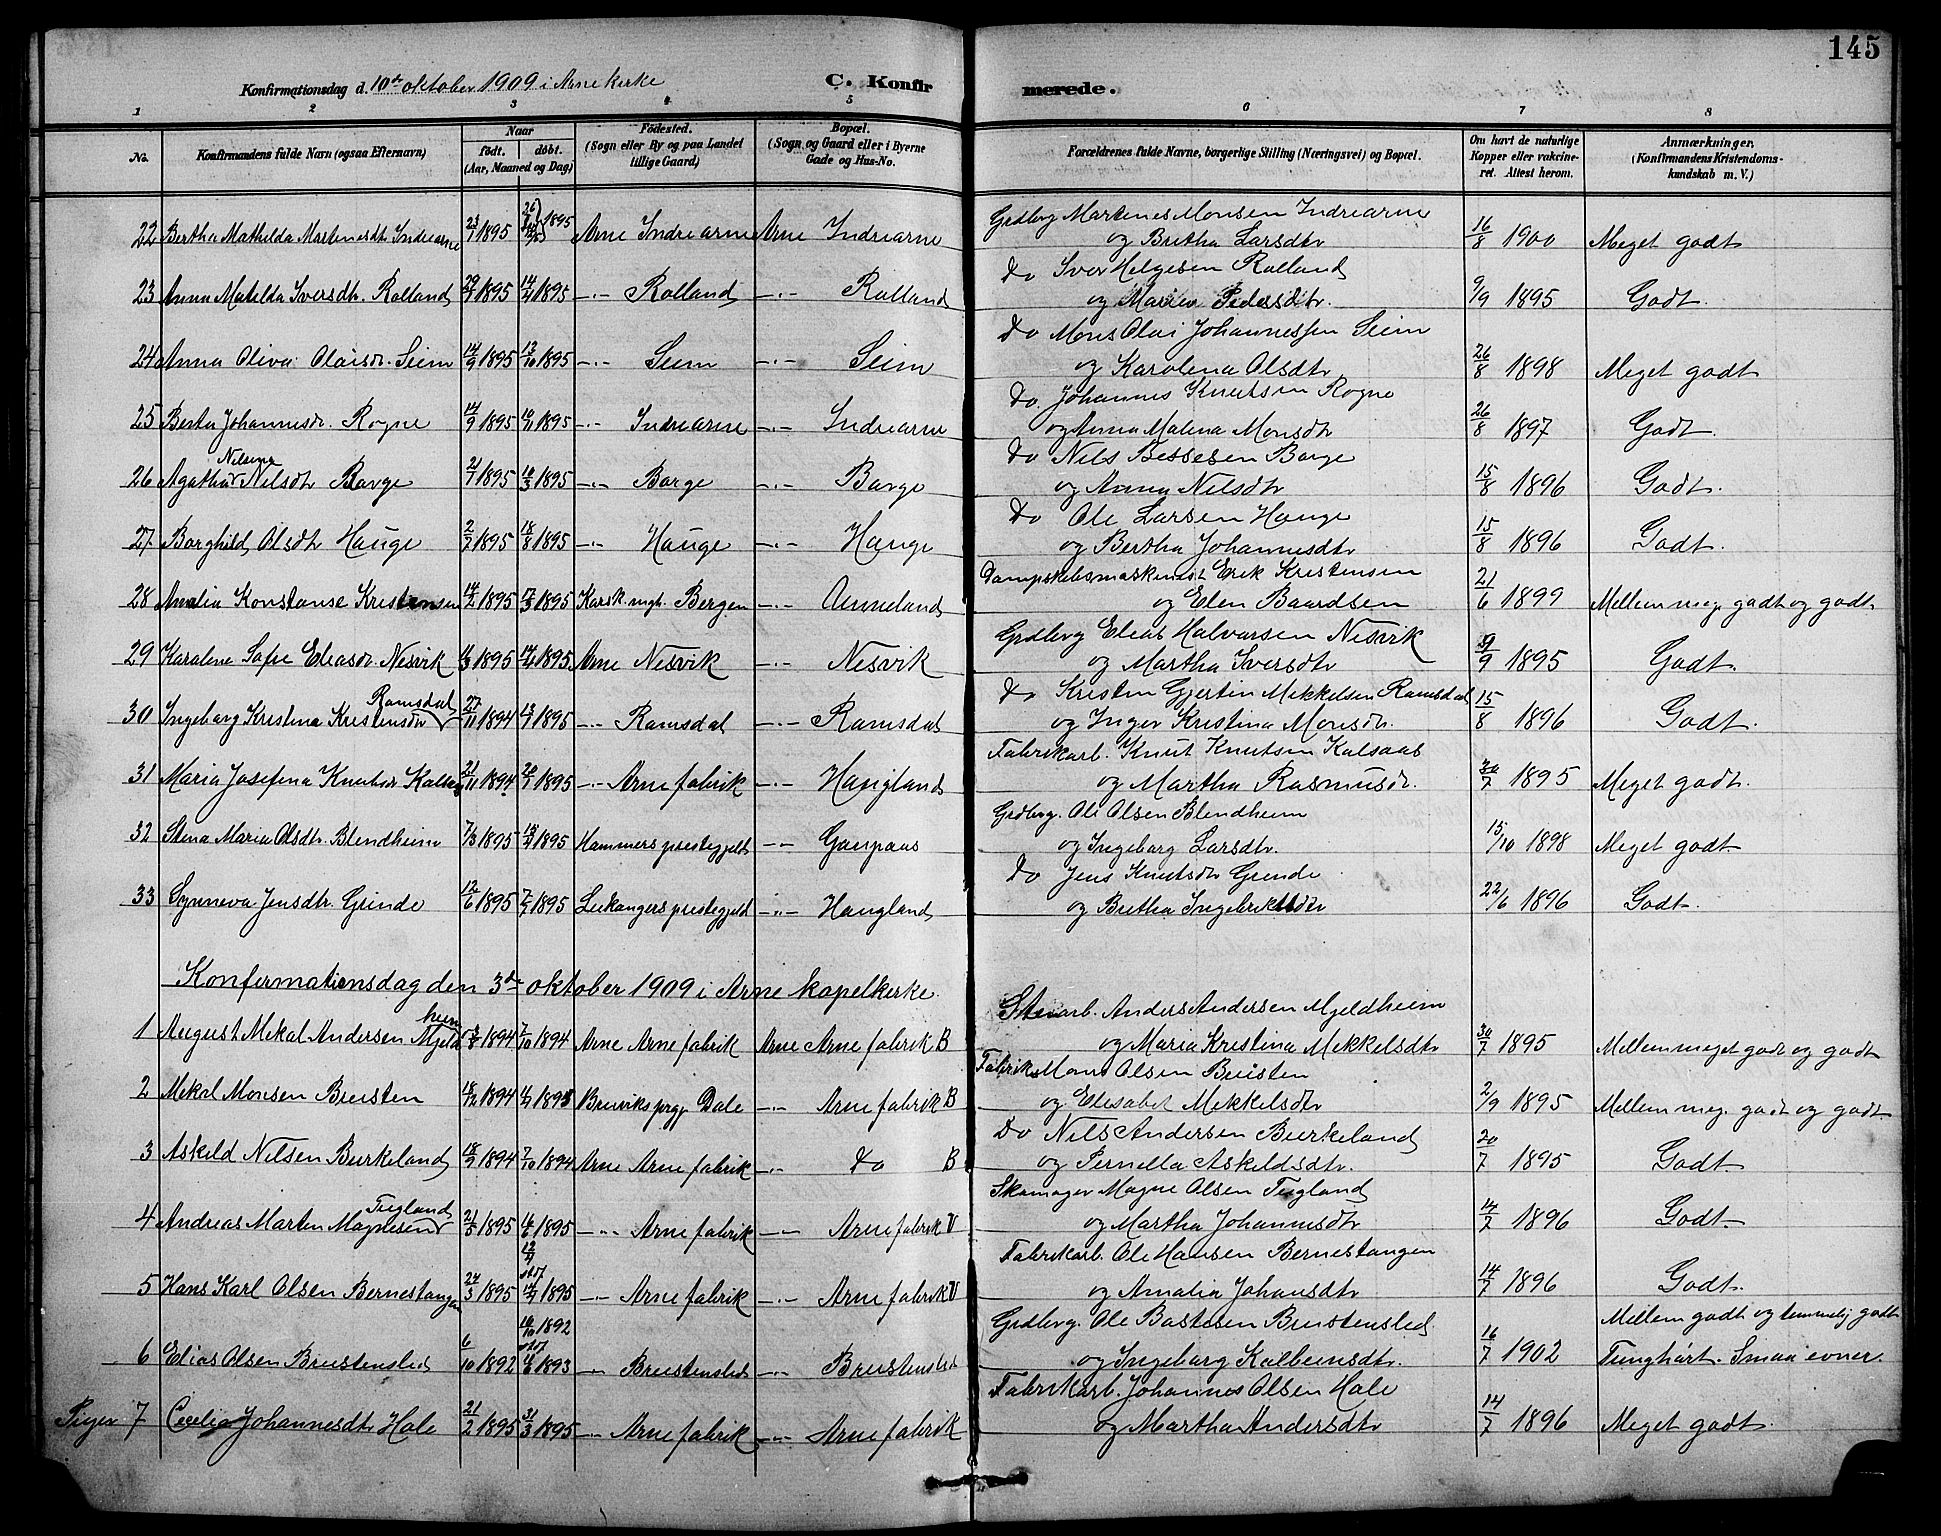 145
Konfirmationsdag d. 10de oktober 1909 i Arne kirke
C. Konfirmerede.
1 2 3 4 5 6 7 8
No. Konfirmandens fulde Navn (ogsaa Efternavn) Naar født. døbt. (Aar, Maaned og Dag) Fødested. (Sogn eller By og paa Landet tillige Gaard) Bopæl. (Sogn og Gaard eller i Byerne Gade og Hus-No. Forældrenes fulde Navne, borgerlige Stilling (Næringsvei) og Bopæl. Om havt de naturlige Kopper eller vakcineret. Attest herom. Anmærkninger, (Konfirmandens Kristendomskundskab m. V.)
Grdbrg Martenes Monsen Indrearne
22 Bertha Mathilda Martenesdtr Indrearne 1895 1895 Arne Indrearne Arne Indrearne og Britha Larsdtr 16/8 1900 Meget godt
Do Iver Helgesen Rolland
23 Anna Matilda Iversdtr. Rolland 1895 1895 -"- Rolland -"- Rolland og Maria Pedersdtr. 9/9 1895 Godt.
Do Mons Olai Johannessen Seim
24 Anna Oliva Olaisdr. Seim 14/9 1895 13/10 1895 -"- Seim -"- Seim og Karolena Olsdtr 26/8 1898 Meget godt
Do Johannes Knutsen Rogne
25 Berta Johannesdr. Rogne 14/9 1895 10/11 1895 -"- Indrearne -"- Indrearne og Anna Malena Monsdtr 26/8 1897 Godt.
Do Nils Bessesen Borge
26 Agatha Nilsine Nilsdtr Borge 1895 1895 -"- Borge -"- Borge og Anna Nilsdtr 15/8 1896 Godt.
Do Ole Larsen Hauge
27 Borghild Olsdtr Hauge 2/7 1895 18/8 1895 -"- Hauge -"- Hauge og Bertha Johannesdtr 15/8 1896 Godt.
Dampskibsmaskinist Erik Kristensen
28 Amalia Konstanse Kristensen 14/2 1895 17/3 1895 Korsk. mgh. Bergen -"- Anneland og Elen Baardsen 21/6 1899 Mellem meg. godt og godt
Grdbrg Elias Halvorsen Nesvik
29 Karolene Sofie Eliasdr. Nesvik 1895 1895 Arne Nesvik -"- Nesvik og Martha Iversdtr 9/9 1895 Godt.
Do Kristen Gjertin Mekkelsen Ramsdal
30 Ingeborg Kristina Kristensdtr Ramsdal 27/11 1894 13/1 1895 -"- Ramsdal -"- Ramsdal og Inger Kristina Monsdr. 15/8 1896 Godt.
Fabrikarb. Knut Knutsen Kalsaas
31 Maria Josefina Knutsdr Kalsaas 21/11 1894 20/1 1895 -"- Arne fabrik -"- Haugland og Martha Rasmusdr. 30/7 1895 Meget godt.
Grdbrg. Ole Olsen Blendheim
32 Stena Maria Olsdtr. Blendheim 7/3 1895 1895 Hammers prestegjeld -"- Gaupaas og Ingeborg Larsdtr. 15/10 1898 Meget godt.
Do Jens Knutsdtr Grinde
33 Synneva Jensdtr. Grinde 12/6 1895 7/7 1895 Leikangers prestegjeld -"- Haugland og Britha Ingebriktsdtr 22/6 1896 Godt.
Konfirmationsdag den 3de oktober 1909 i Arne kapelkirke.
Stenarb. Anders Andersen Mjeldheim
1 August Mekal Andersen Mjeldheim 3/8 1894 7/10 1894 Arne Arne fabrik Arne Arne fabrik B og Maria Kristina Mekkelsdtr 30/7 1895 Mellem meget godt og godt
Fabrik Mons Olsen Breisten
2 Mekal Monsen Breisten 18/12 1894 1895 Bruviks prgj Dale -"- Arne fabrik B og Elisabet Mekkelsdtr 2/9 1895 Mellem meg. godt og godt
Do Nils Andersen Birkeland
3 Askeld Nilsen Birkeland 18/9 1894 7/10 1894 Arne Arne fabrik -"- Do B og Pernella Askeldsdtr. 20/7 1895 Godt
Skomager Magne Olsen Tugland
4 Andreas Marten Magnesen Tugland 21/5 1895 1895 -"- Arne fabrik -"- Arne fabrik V og Martha Johannesdtr 14/7 1896 Godt.
Fabrikarb. Ole Hansen Bernestangen
5 Hans Karl Olsen Bernestangen 24/3 1895 1895 -"- Arne fabrik -"- Arne fabrik V og Amalia Johansdtr 14/7 1896 Godt.
Grdbrg. Ole Bastesen Breistensled. Mellem godt og temmelig godt
6 Elias Olsen Breistensled 6/10 1892 1892 1893 -"- Breistensled -"- Breistensled og Ingeborg Kolbeinsdtr. 16/7 1902 Tunghørt. Smaa evner.
Fabrikarb. Johannes Olsen Hole
Piger 7 Cecelia Johannesdtr Hole 21/2 1895 31/3 1895 -"- Arne fabrik -"- Arne fabrik og Martha Andersdtr 14/7 1896 Meget godt.